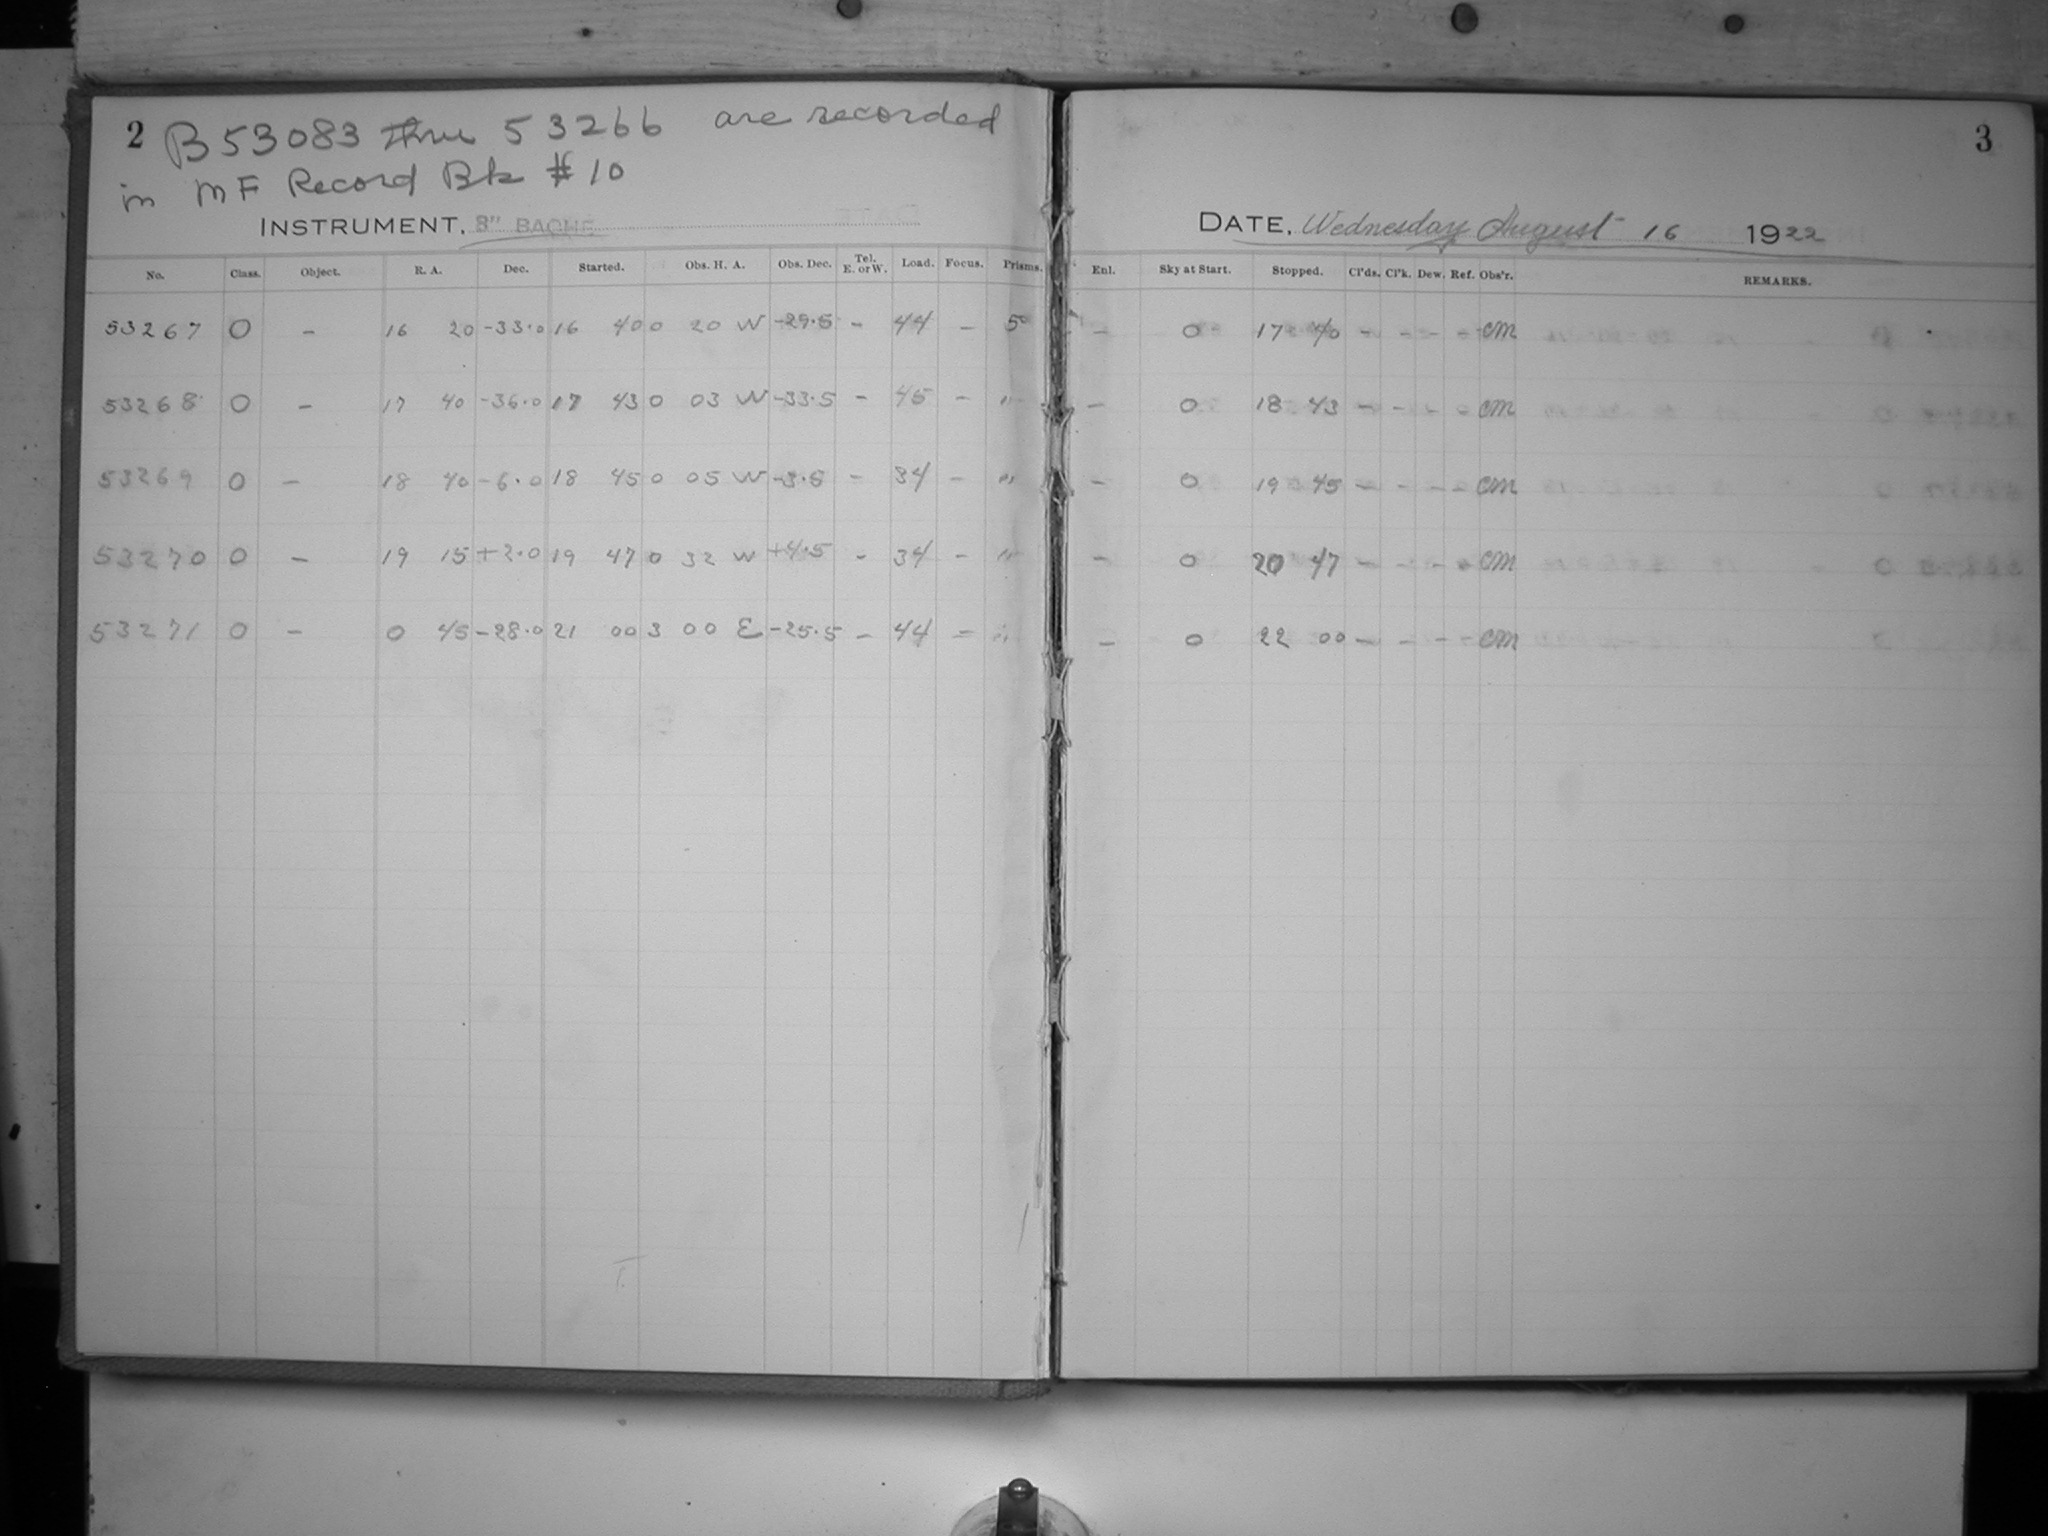 2 B53083 thru 53266 are recorded
in MF Record Bk # 10
INSTRUMENT, 8" BACHE
No. Class. Object. R. A. Dec. Started. Obs. H. A. Obs. Dec. Tel. E. or W. Load. Focus. Prisms.
53267 O - 16 20 -33.0 16 40 0 20 W -29.5 - 44 - 5°
53268 O - 17 40 -36.0 17 43 0 03 W -33.5 - 45 - "
53269 O - 18 40 -6.0 18 45 0 05 W -3.5 - 34 - "
53270 O - 19 15 +2.0 19 47 0 32 W +4.5 - 34 - "
53271 O - 0 45 -28.0 21 00 3 00 E -25.5 - 44 - "
3
DATE, Wednesday August 16 1922
Enl. Sky at Start. Stopped. Cl'ds. Cl'k. Dew. Ref. Obs'r. REMARKS.
- 0 17 40 - - - - CM
- 0 18 43 - - - - CM
- 0 19 45 - - - - CM
- 0 20 47 - - - - CM
- 0 22 00 - - - - CM